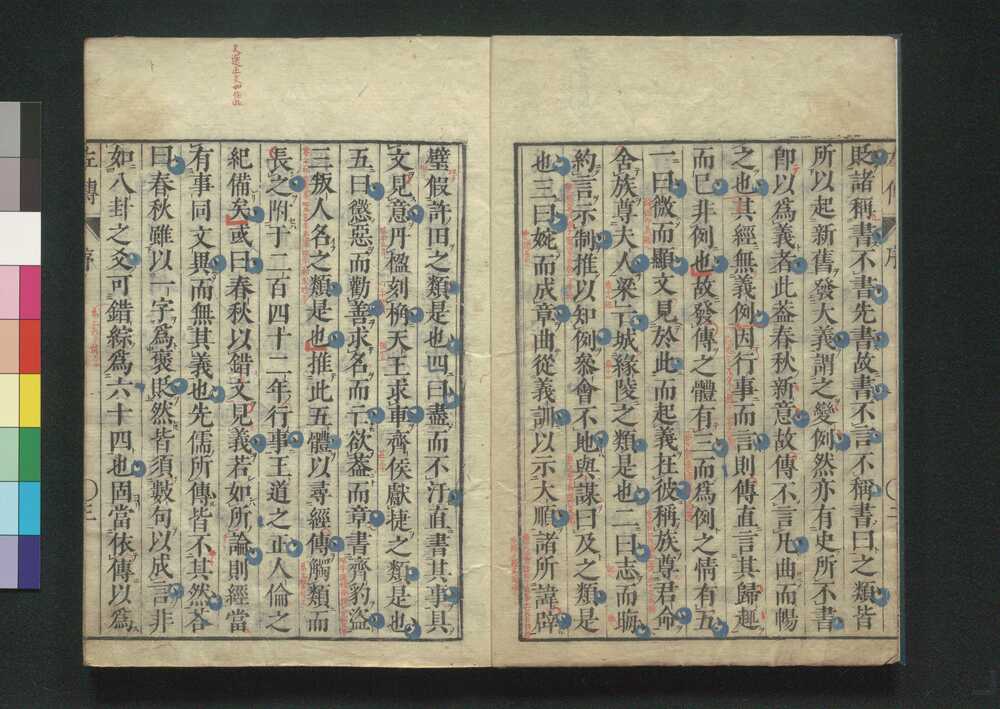 貶諸稱書不書先書故書不言不稱書曰之類皆
所以起新舊發大義謂之變例然亦有史所不書
卽以爲義者此葢春秋新意故傳不言凡曲而暢
之也其經無義例因行事而言則傳直言其歸趣
而已非例也故發傳之體有三而爲例之情有五
一曰微而顯文見於此而起義在彼稱族尊君命
舍族尊夫人梁亡城緣陵之類是也二曰志而晦
約言示制推以知例參會不地與謀曰及之類是
也三曰婉而成章曲從義訓以示大順諸所諱辟
璧假許田之類是也四曰盡而不汙直書其事具
文見意丹楹刻桷天王求車齊侯獻捷之類是也
五曰懲惡而勸善求名而亡欲葢而章書齊豹盜
三叛人名之類是也推此五體以尋經傳觸類而
長之附于二百四十二年行事王道之正人倫之
紀備矣或曰春秋以錯文見義若如所論則經當
有事同文異而無其義也先儒所傳皆不其然答
曰春秋雖以一字爲褒貶然皆須數句以成言非
如八卦之爻可錯綜爲六十四也固當依傳以爲
左傳 序 〇三